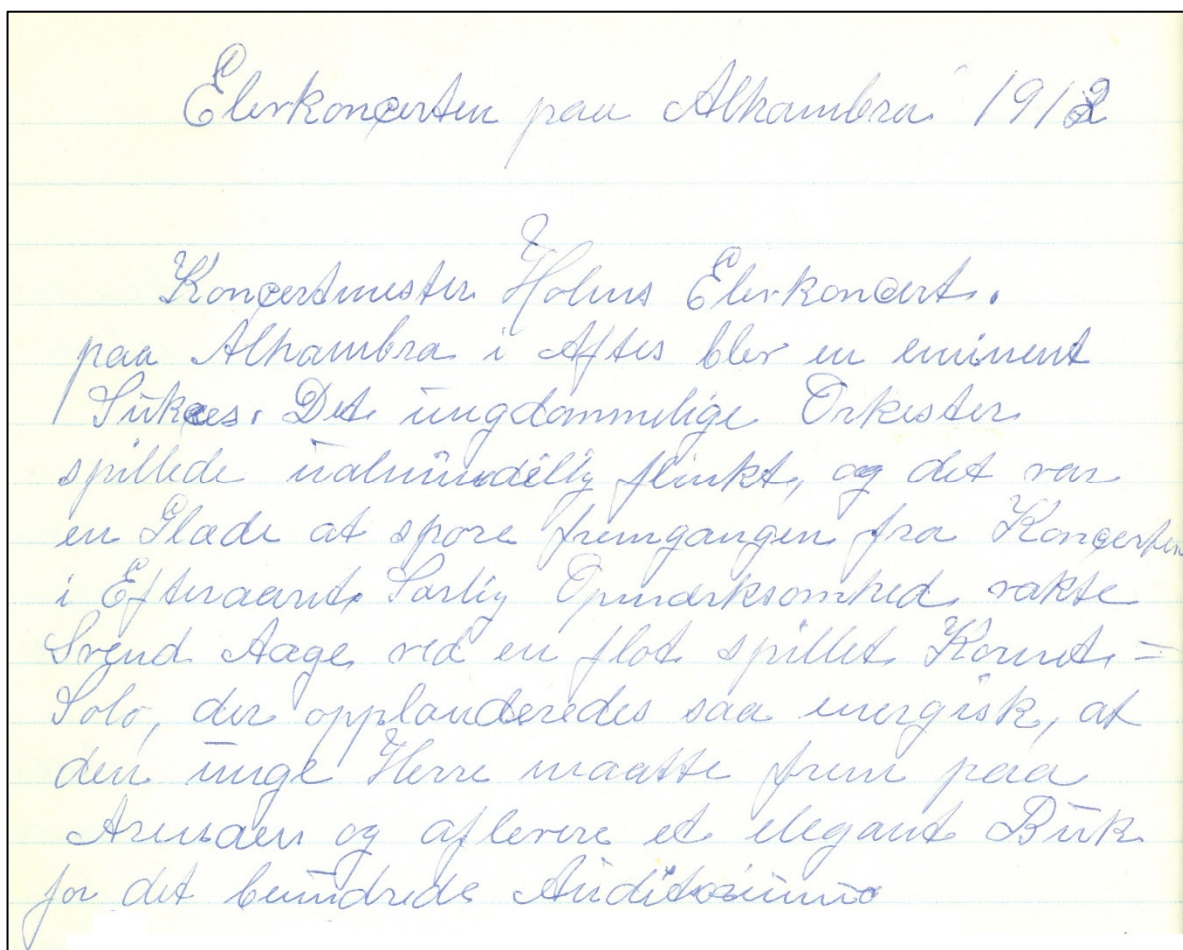 Elevkoncerten paa Alhambra 1912
Koncertmester Holms Elevkoncert.
paa Alhambra i Aftes blev en eminent
Sukces. Det ungdommelige Orkester
spillede ualmindelig flinkt, og det var
en Glæde at spore fremgangen fra Koncerten
i Efteraaret. Særlig Opmærksomhed vakte
Svend Aage ved en flot spillet Kornet =
Solo, der opplauderedes saa energisk, at
den unge Herre maatte frem paa
og aflevere et elegant Buk
for det beundrede Auditorium